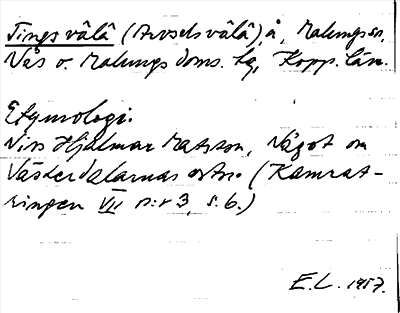 Tingsvålå (Arvselsvålå), å, Malungs sn,
Nås o. Malungs doms. hg, Kopp. län.
Etymologi:
Nils Hjalmar Matsson, Något om
Västerdalarnas ortn. (Kamrat-
ringen VII nr 3, s. 6.)
E. L. 1957.